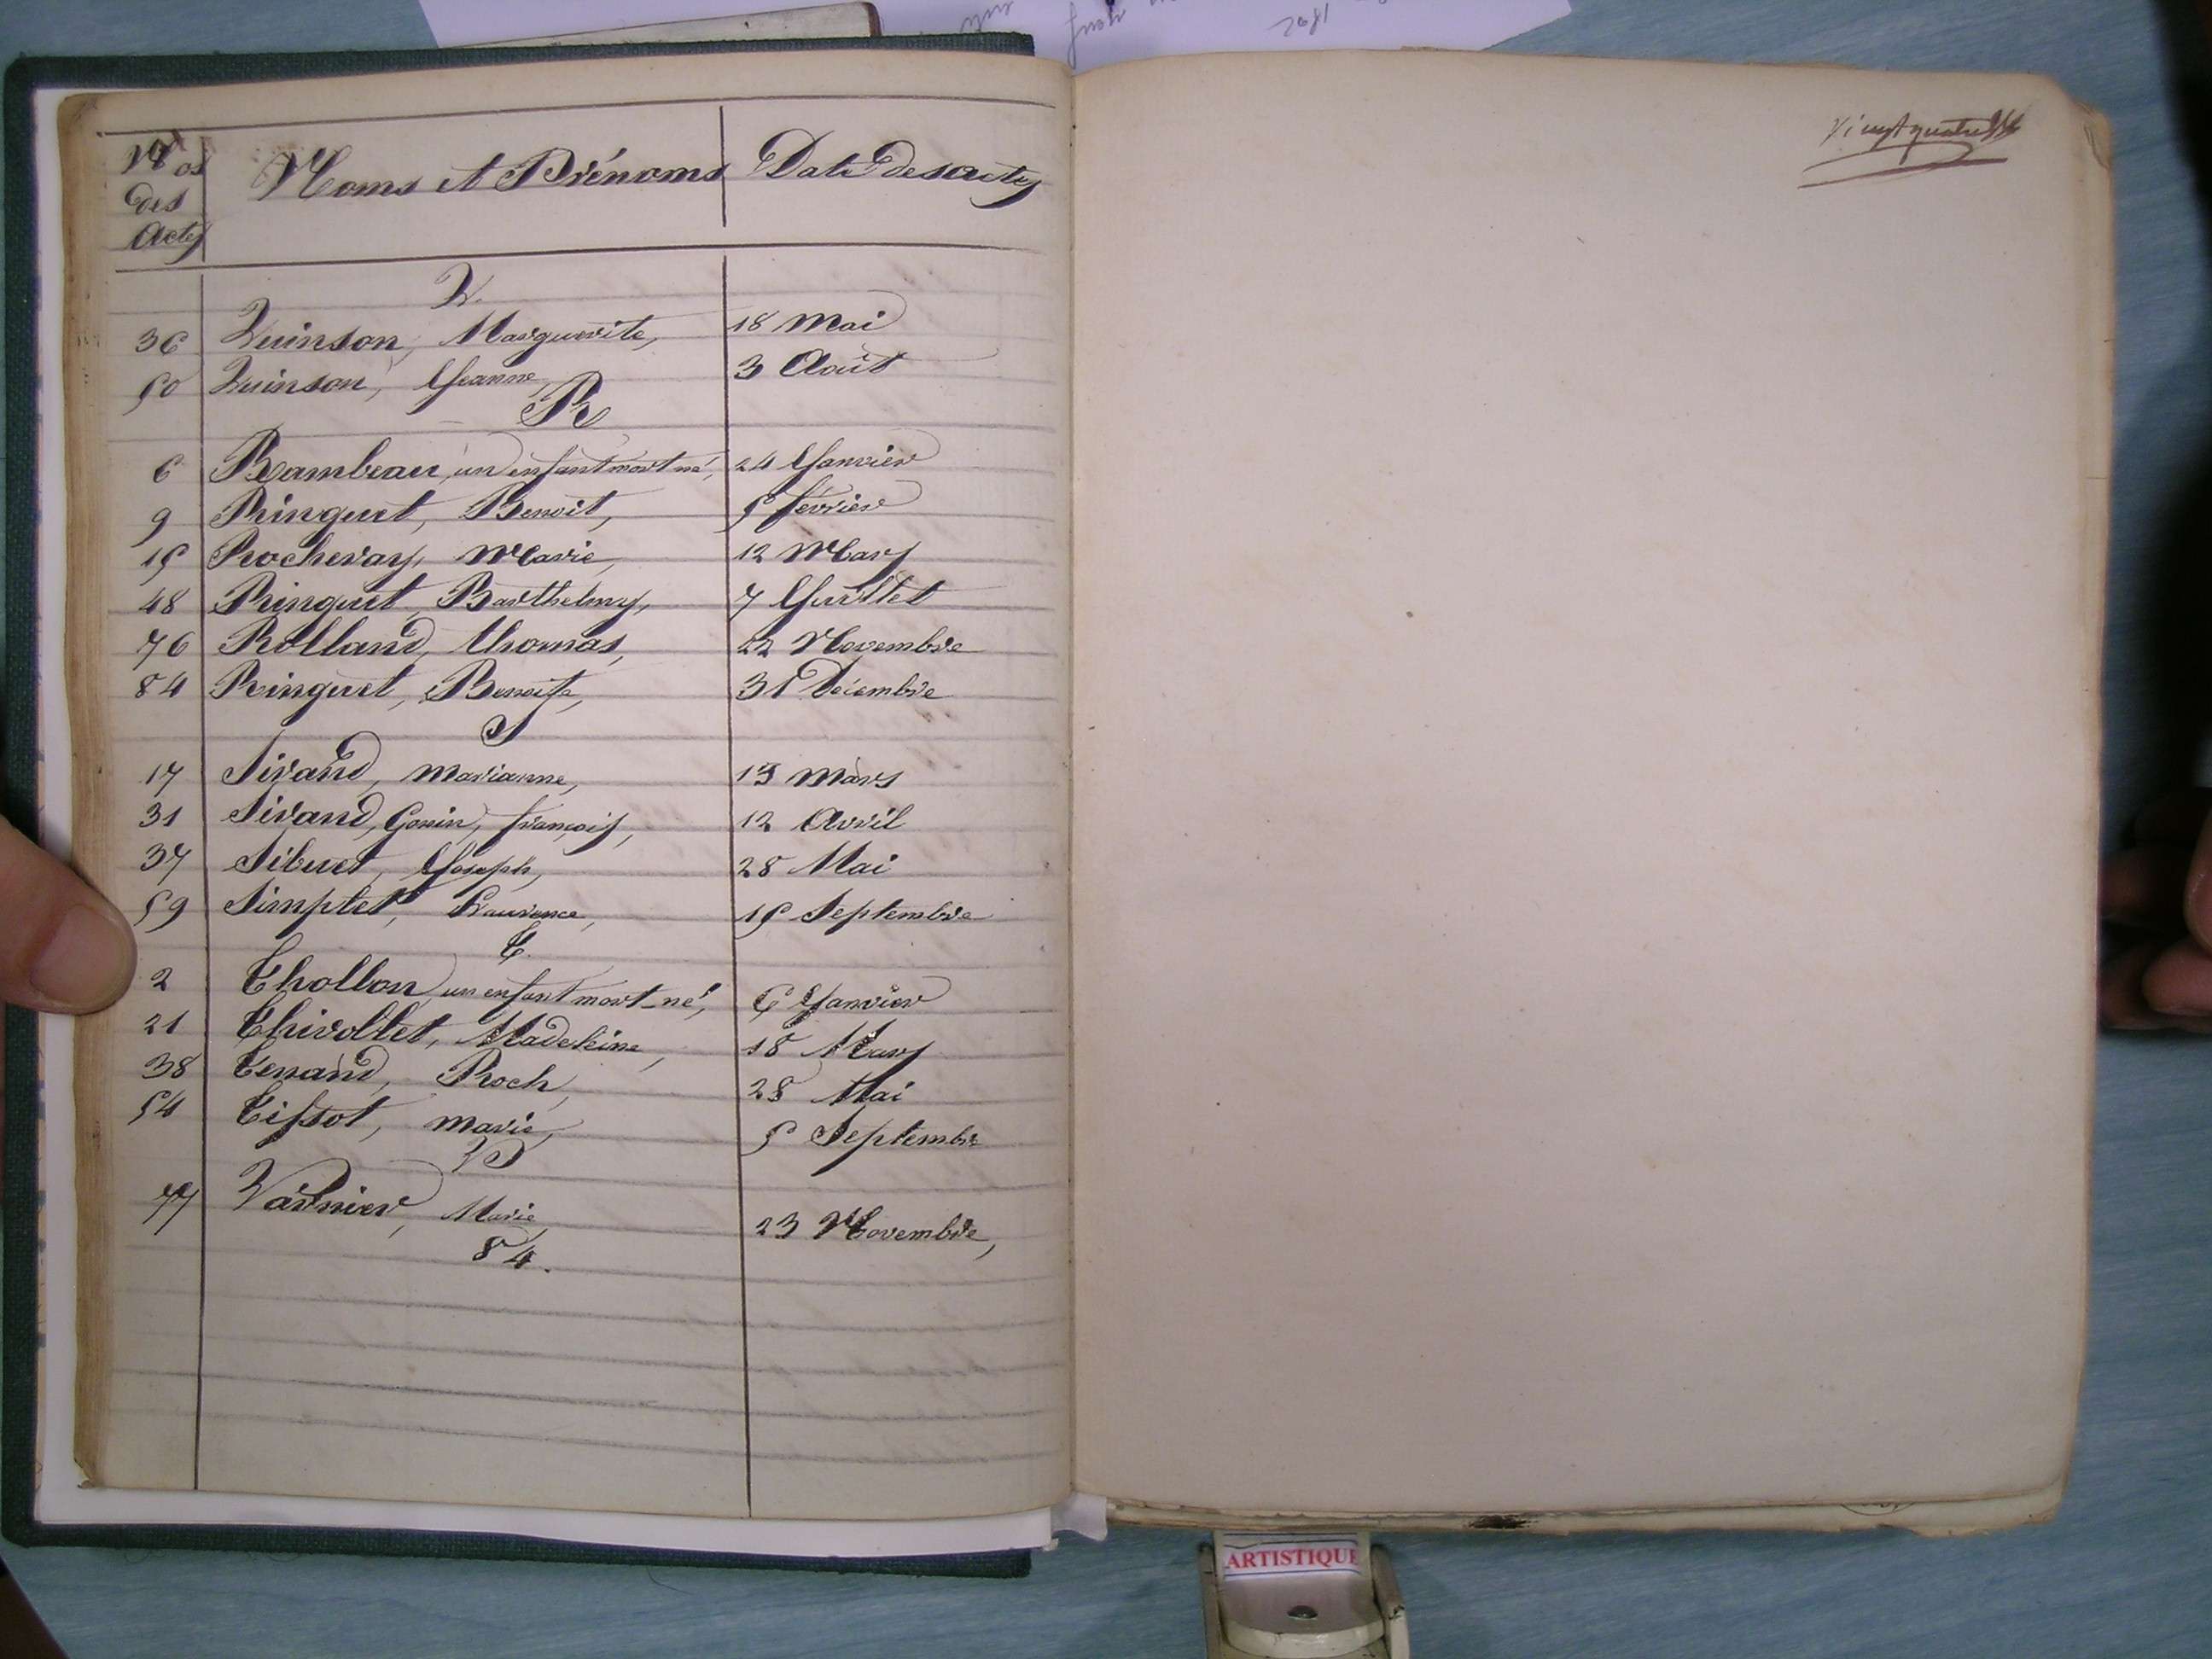 Nos des Actes
Noms et Prénoms
Date des actes
Q.
36 Quinson, Marguerite, 18 Mai
50 Quinson, Jeanne, 3 Août
R
6 Rambeau, un enfant mort né, 24 Janvier
9 Ringuet, Benoit, 5 février
15 Rochevay, Marie, 12 Mars
48 Ringuet, Barthelmy, 7 Juillet
76 Rolland, thomas, 22 Novembre
84 Ringuet, Benoite, 31 Décembre
S
17 Sivand, marianne, 13 mars
31 Sivand, Gonin, françois, 12 Avril
37 Sibuet, Joseph, 28 Mai
59 Simplet, Laurence, 15 Septembre
T.
2 Thollon, un enfant mort-né, 6 Janvier
21 Thivollet, Madeleine, 18 Mars
38 Tenand, Roch, 28 Mai
54 Tissot, marie, 5 Septembre
V
77 Varnier, Marie, 23 Novembre,
84.
Vingt quatre
ARTISTIQUE